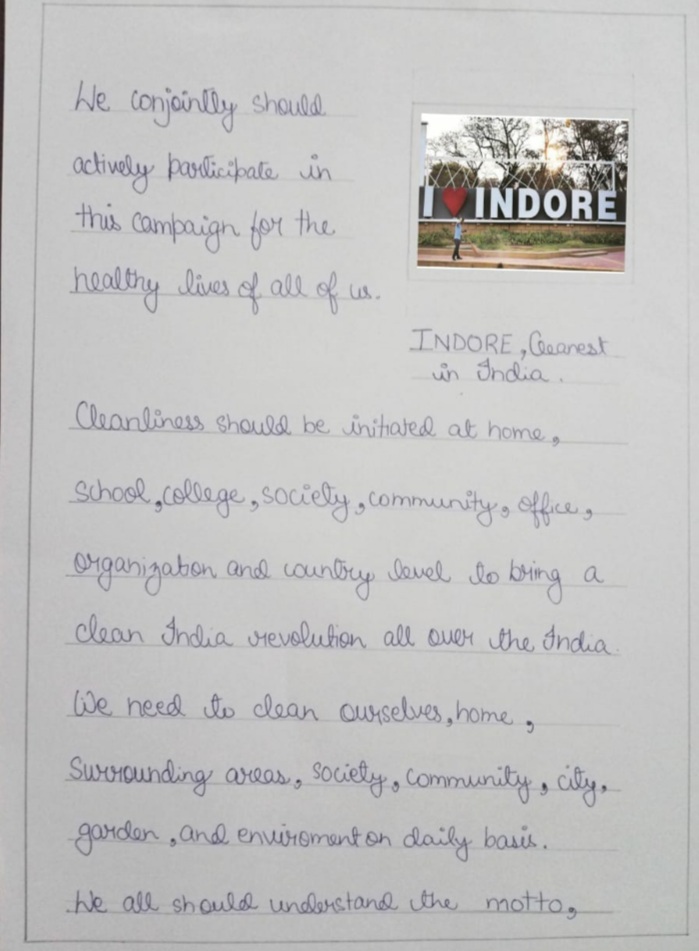 We conjointly should
actively participate in
this campaign for the
healthy lives of all of us.
I ❤ INDORE
INDORE, Cleanest
in India.
Cleanliness should be initiated at home,
school, college, society, community, office,
organization and country level to bring a
clean India revolution all over the India.
We need to clean ourselves, home,
Surrounding areas, society, community, city,
garden, and enviroment on daily basis.
We all should understand the motto,